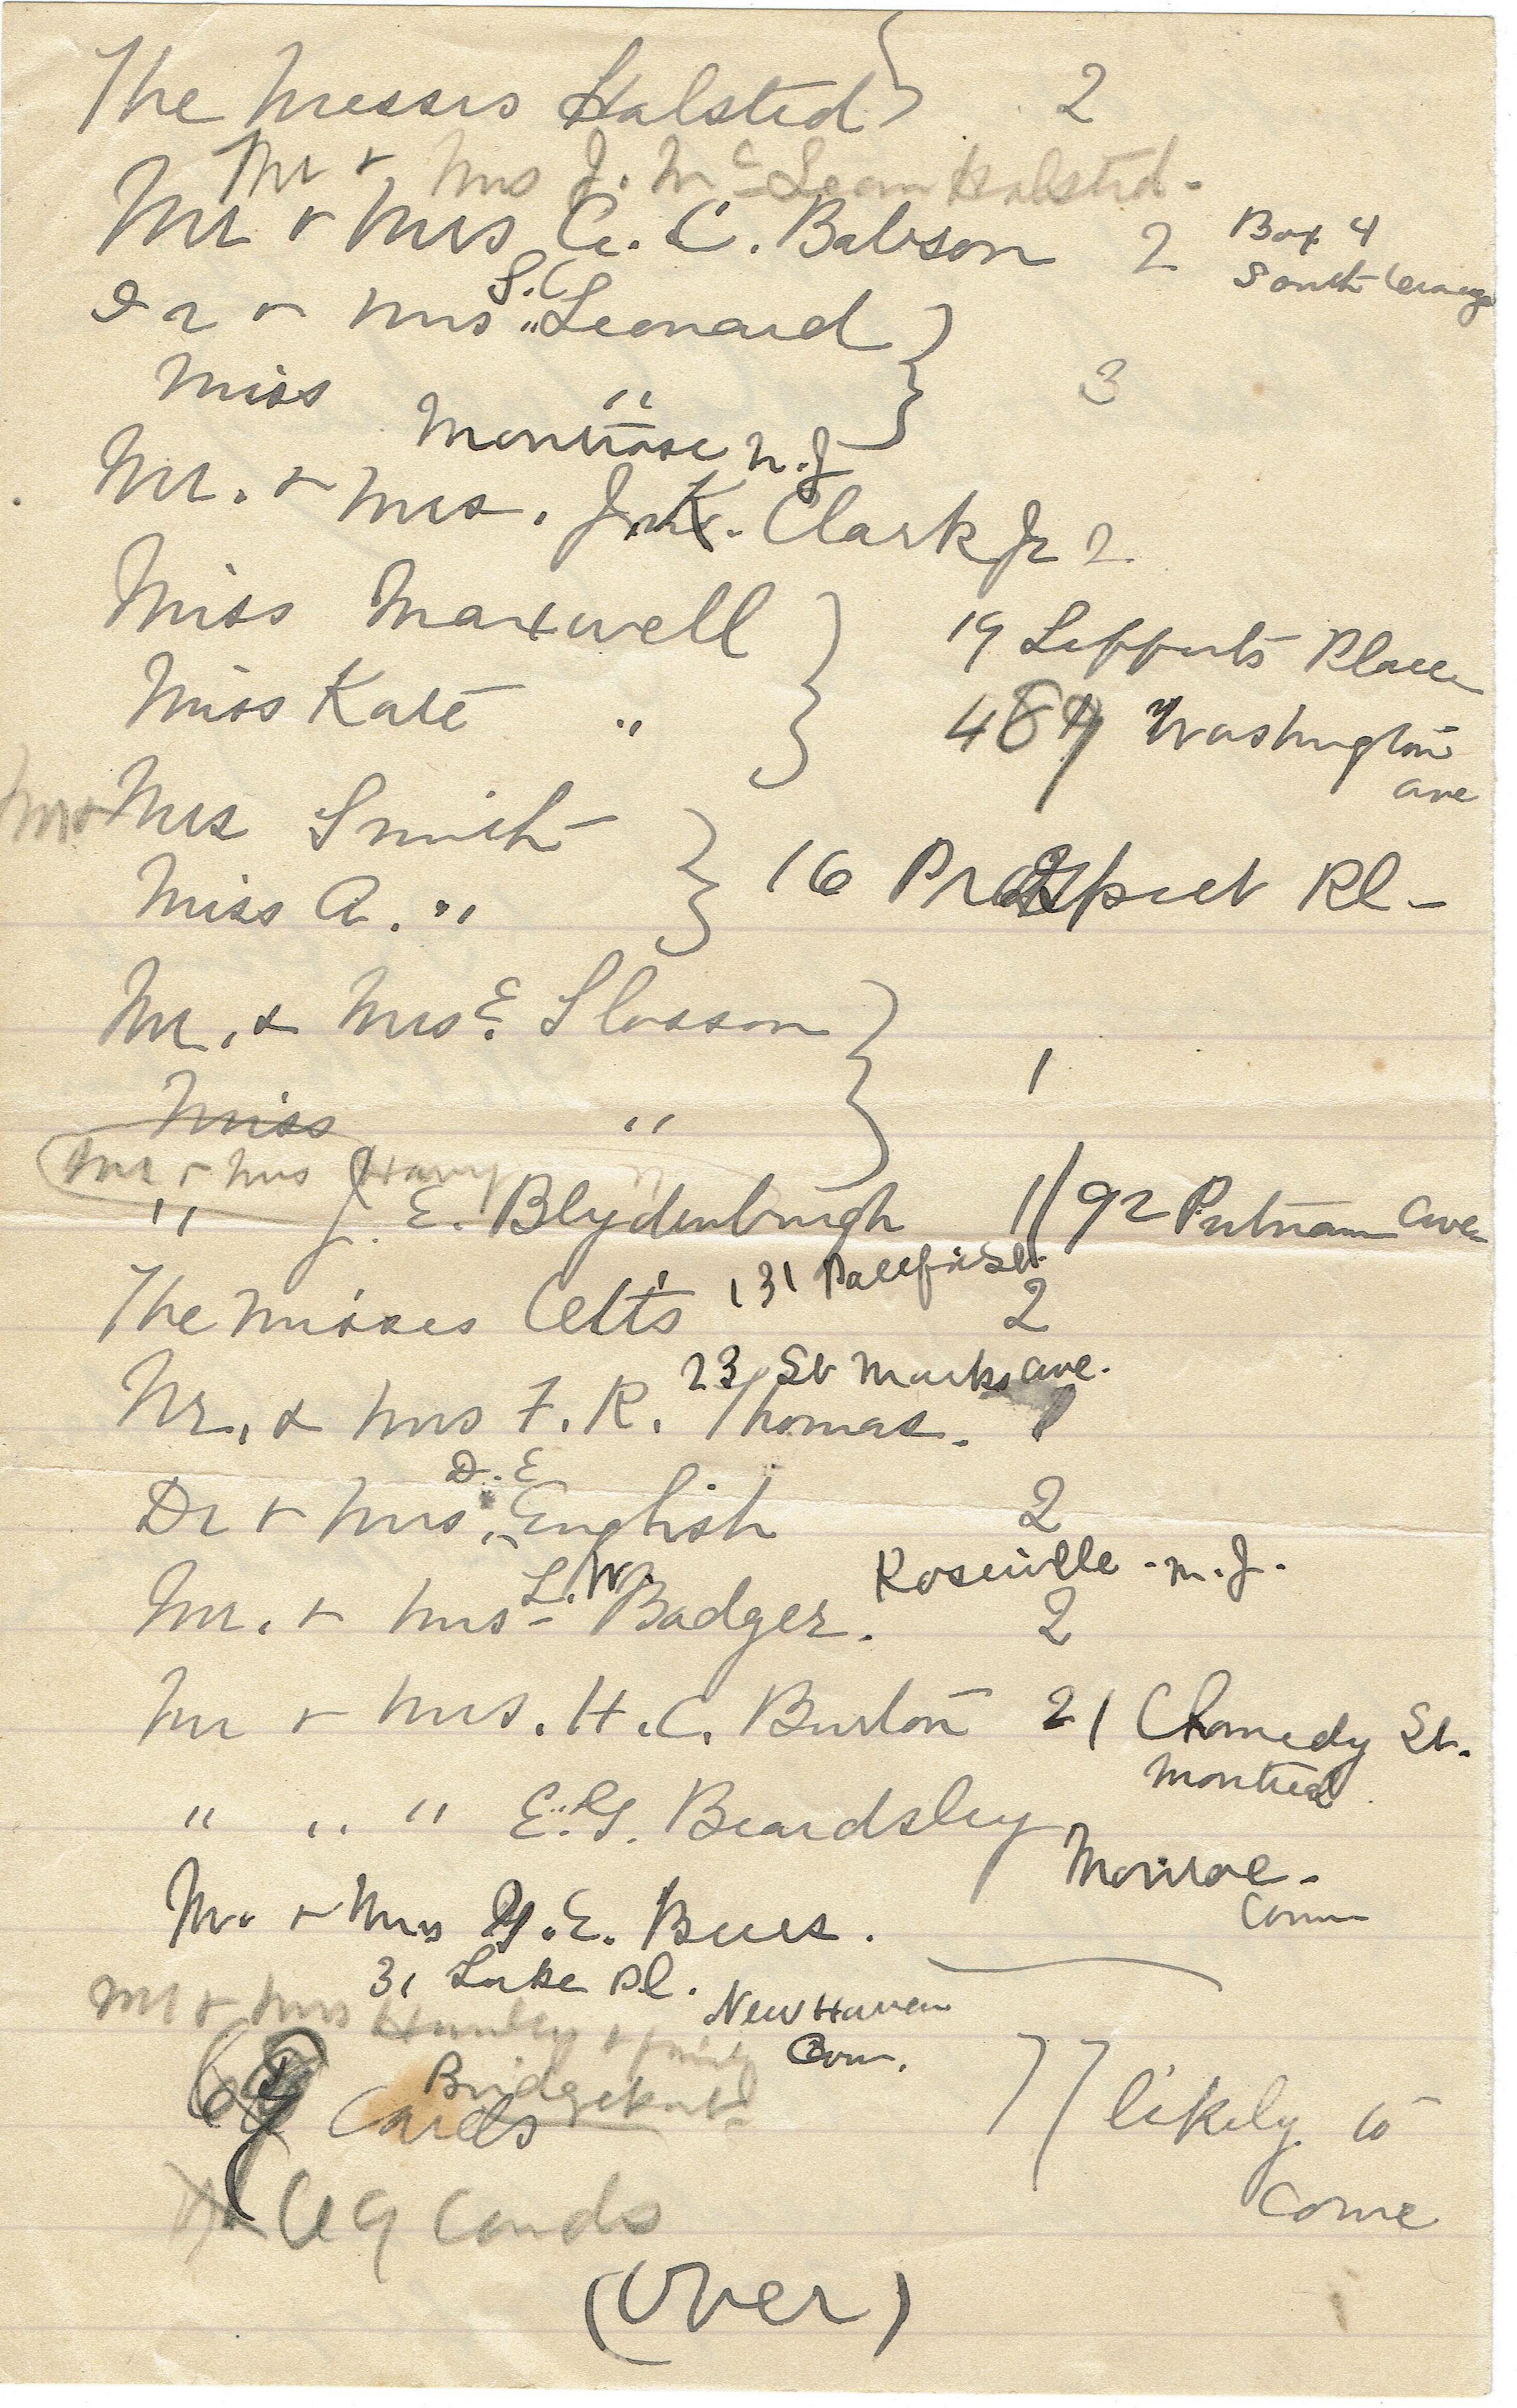 The Messrs Halsted } 2
Mr + Mrs J. Mc Lean Halsted -
Mr + Mrs C. C. Babson 2 Box 4
South Orange
Dr + Mrs S. C. Leonard }
Miss " } 3
Montrose N.J
Mr. + Mrs. J. K. Clark Jr 2
Miss Maxwell } 19 Lefferts Place
Miss Kate " } 487 Washington
ave
Mr + Mrs Smith } 16 Prospect Pl -
Miss A. " }
Mr. & Mrs E. Slosson }
Miss " } 1
Mr + Mrs Harry "
" J. E. Blydenburgh 1 / 92 Putnam Ave
The Misses Cetts 131 Pacific St. 2
23 St Marks ave.
Mr. & Mrs F. R. Thomas.
Dr + Mrs D. E. English 2
Roseville - N. J.
Mr. + Mrs L. W. Badger. 2
Mr + Mrs. H. C. Burton 21 Chomedy St.
Montreal
" " " E. G. Beardsley
Monroe -
Conn
Mr. + Mrs H. E. Buers.
31 Lake Pl. New Haven
Conn.
Mr + Mrs Hunley + family
Bridgeport
Cards } likely to
come
69 Cards
(Over)